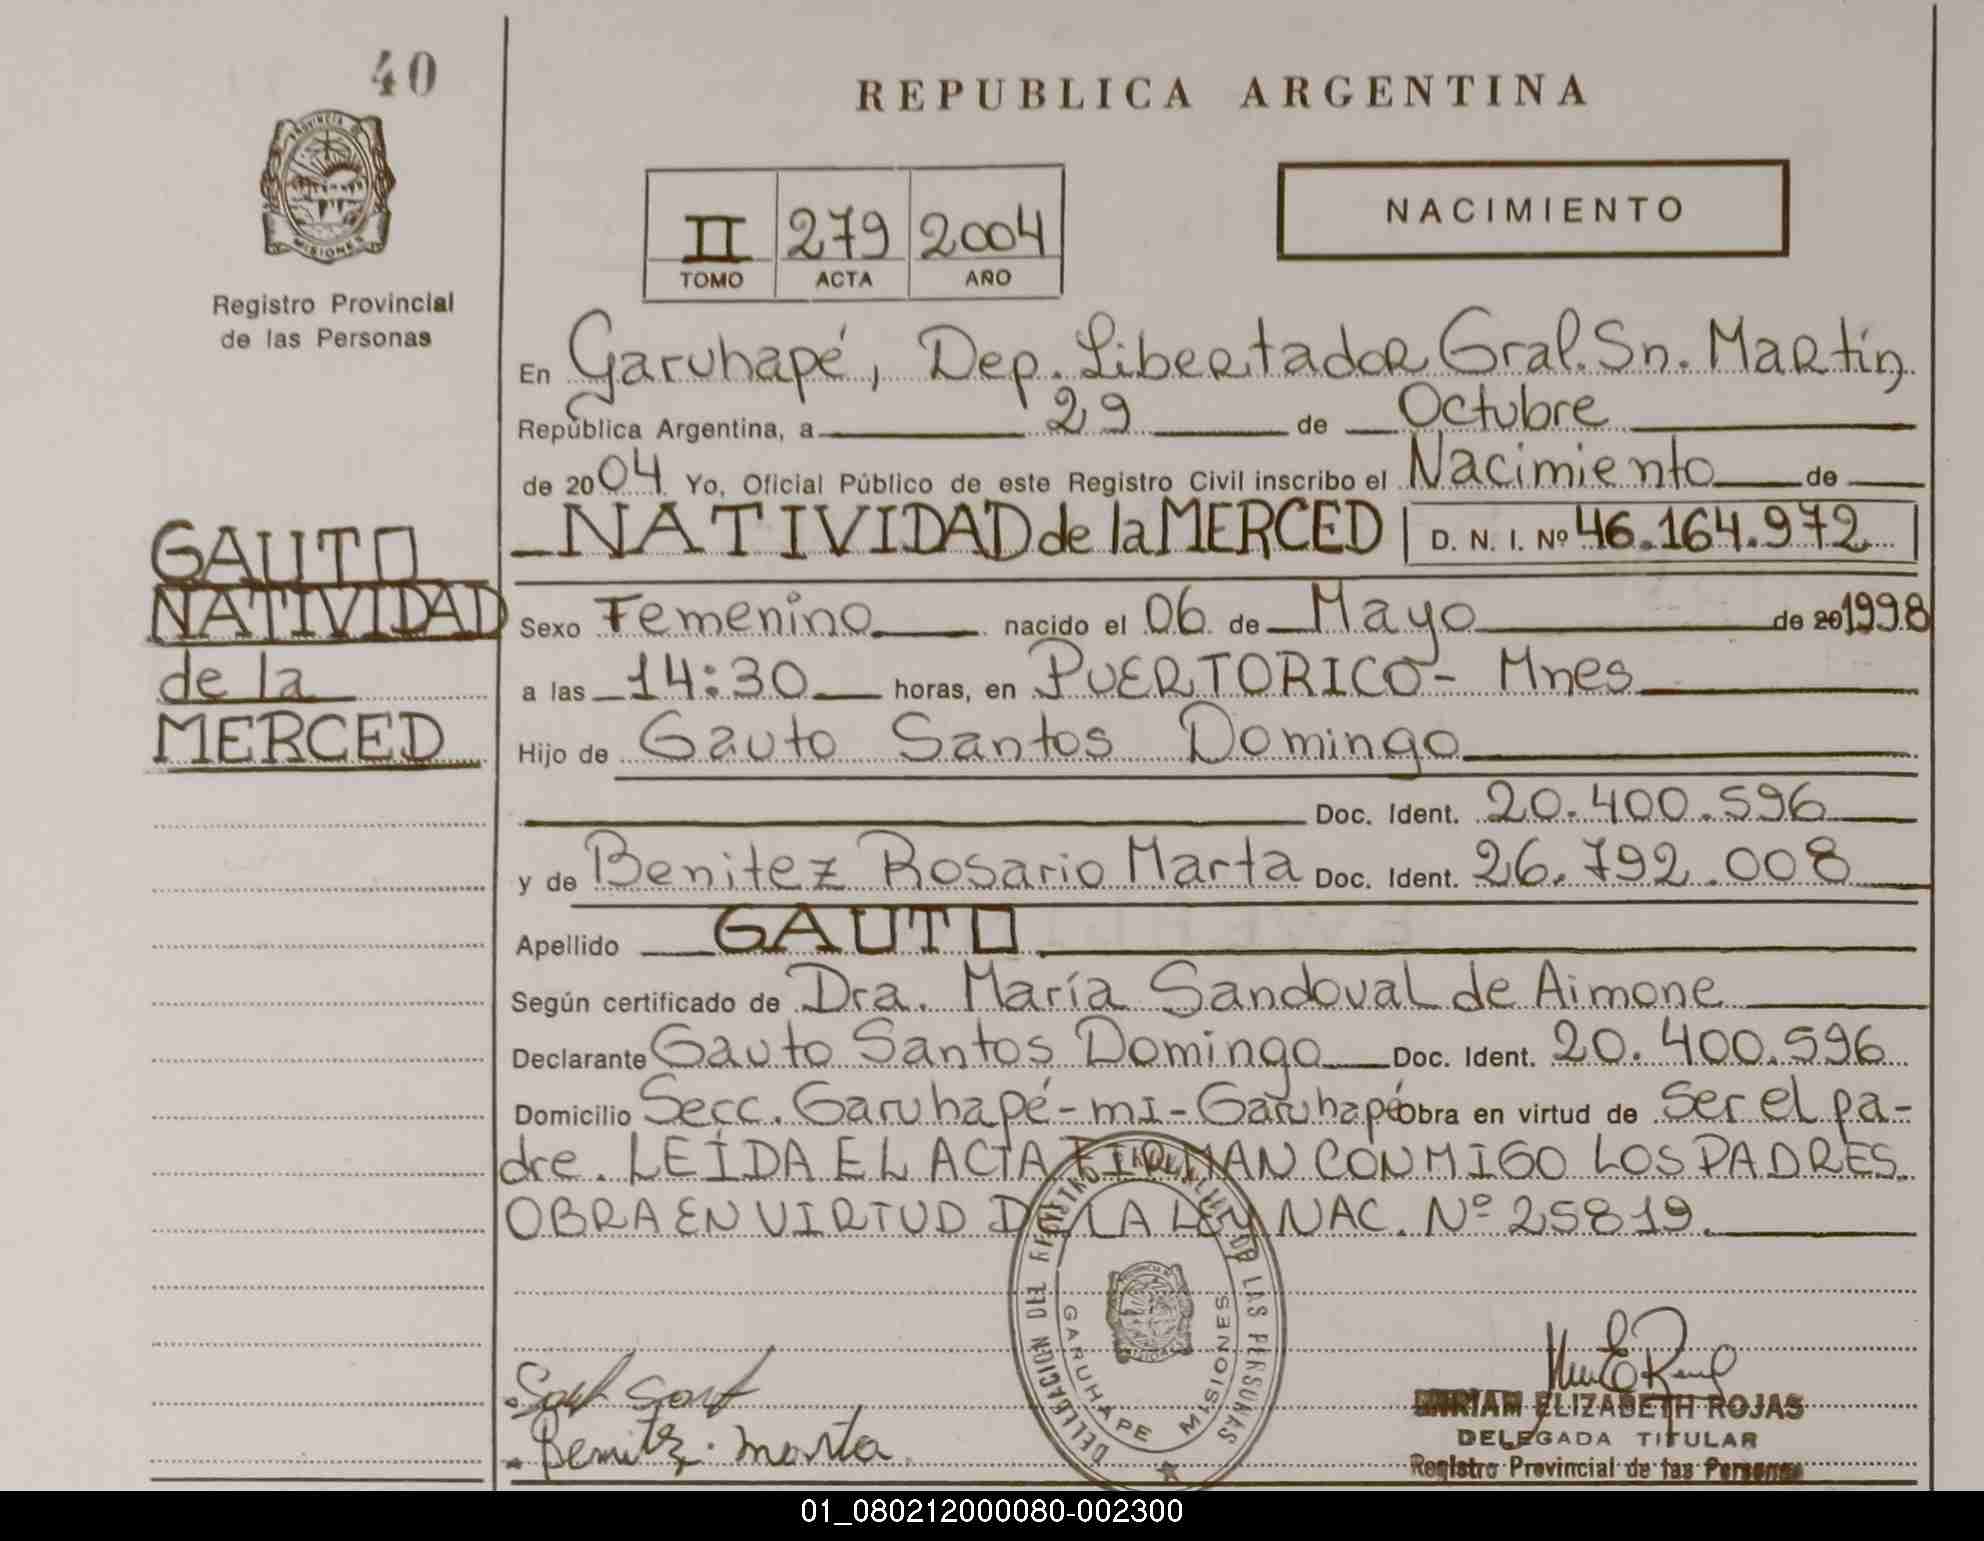 40
REPUBLICA ARGENTINA
PROVINCIA DE
MISIONES
Registro Provincial
de las Personas
II 279 2004
TOMO ACTA AÑO
NACIMIENTO
En Garuhapé, Dep. Libertador Gral. Sn. Martín
República Argentina, a 29 de Octubre
de 2004 Yo, Oficial Público de este Registro Civil inscribo el Nacimiento de
NATIVIDAD de la MERCED D. N. I. Nº 46.164.972
GAUTO
NATIVIDAD
de la
MERCED
Sexo Femenino nacido el 06 de Mayo de 20 1998
a las 14:30 horas, en PUERTO RICO - Mnes
Hijo de Gauto Santos Domingo
Doc. Ident. 20.400.596
y de Benitez Rosario Marta Doc. Ident. 26.792.008
Apellido GAUTO
Según certificado de Dra. María Sandoval de Aimone
Declarante Gauto Santos Domingo Doc. Ident. 20.400.596
Domicilio Secc. Garuhapé-mi-Garuhapé obra en virtud de Ser el pa-
dre. LEÍDA EL ACTA FIRMAN CONMIGO LOS PADRES.
OBRA EN VIRTUD DE LA LEY NAC. Nº 25819.
DELEGACION DEL REGISTRO PROVINCIAL DE LAS PERSONAS
GARUHAPE MISIONES
Benitez. Marta
MIRIAM ELIZABETH ROJAS
DELEGADA TITULAR
Registro Provincial de las Personas
01_080212000080-002300